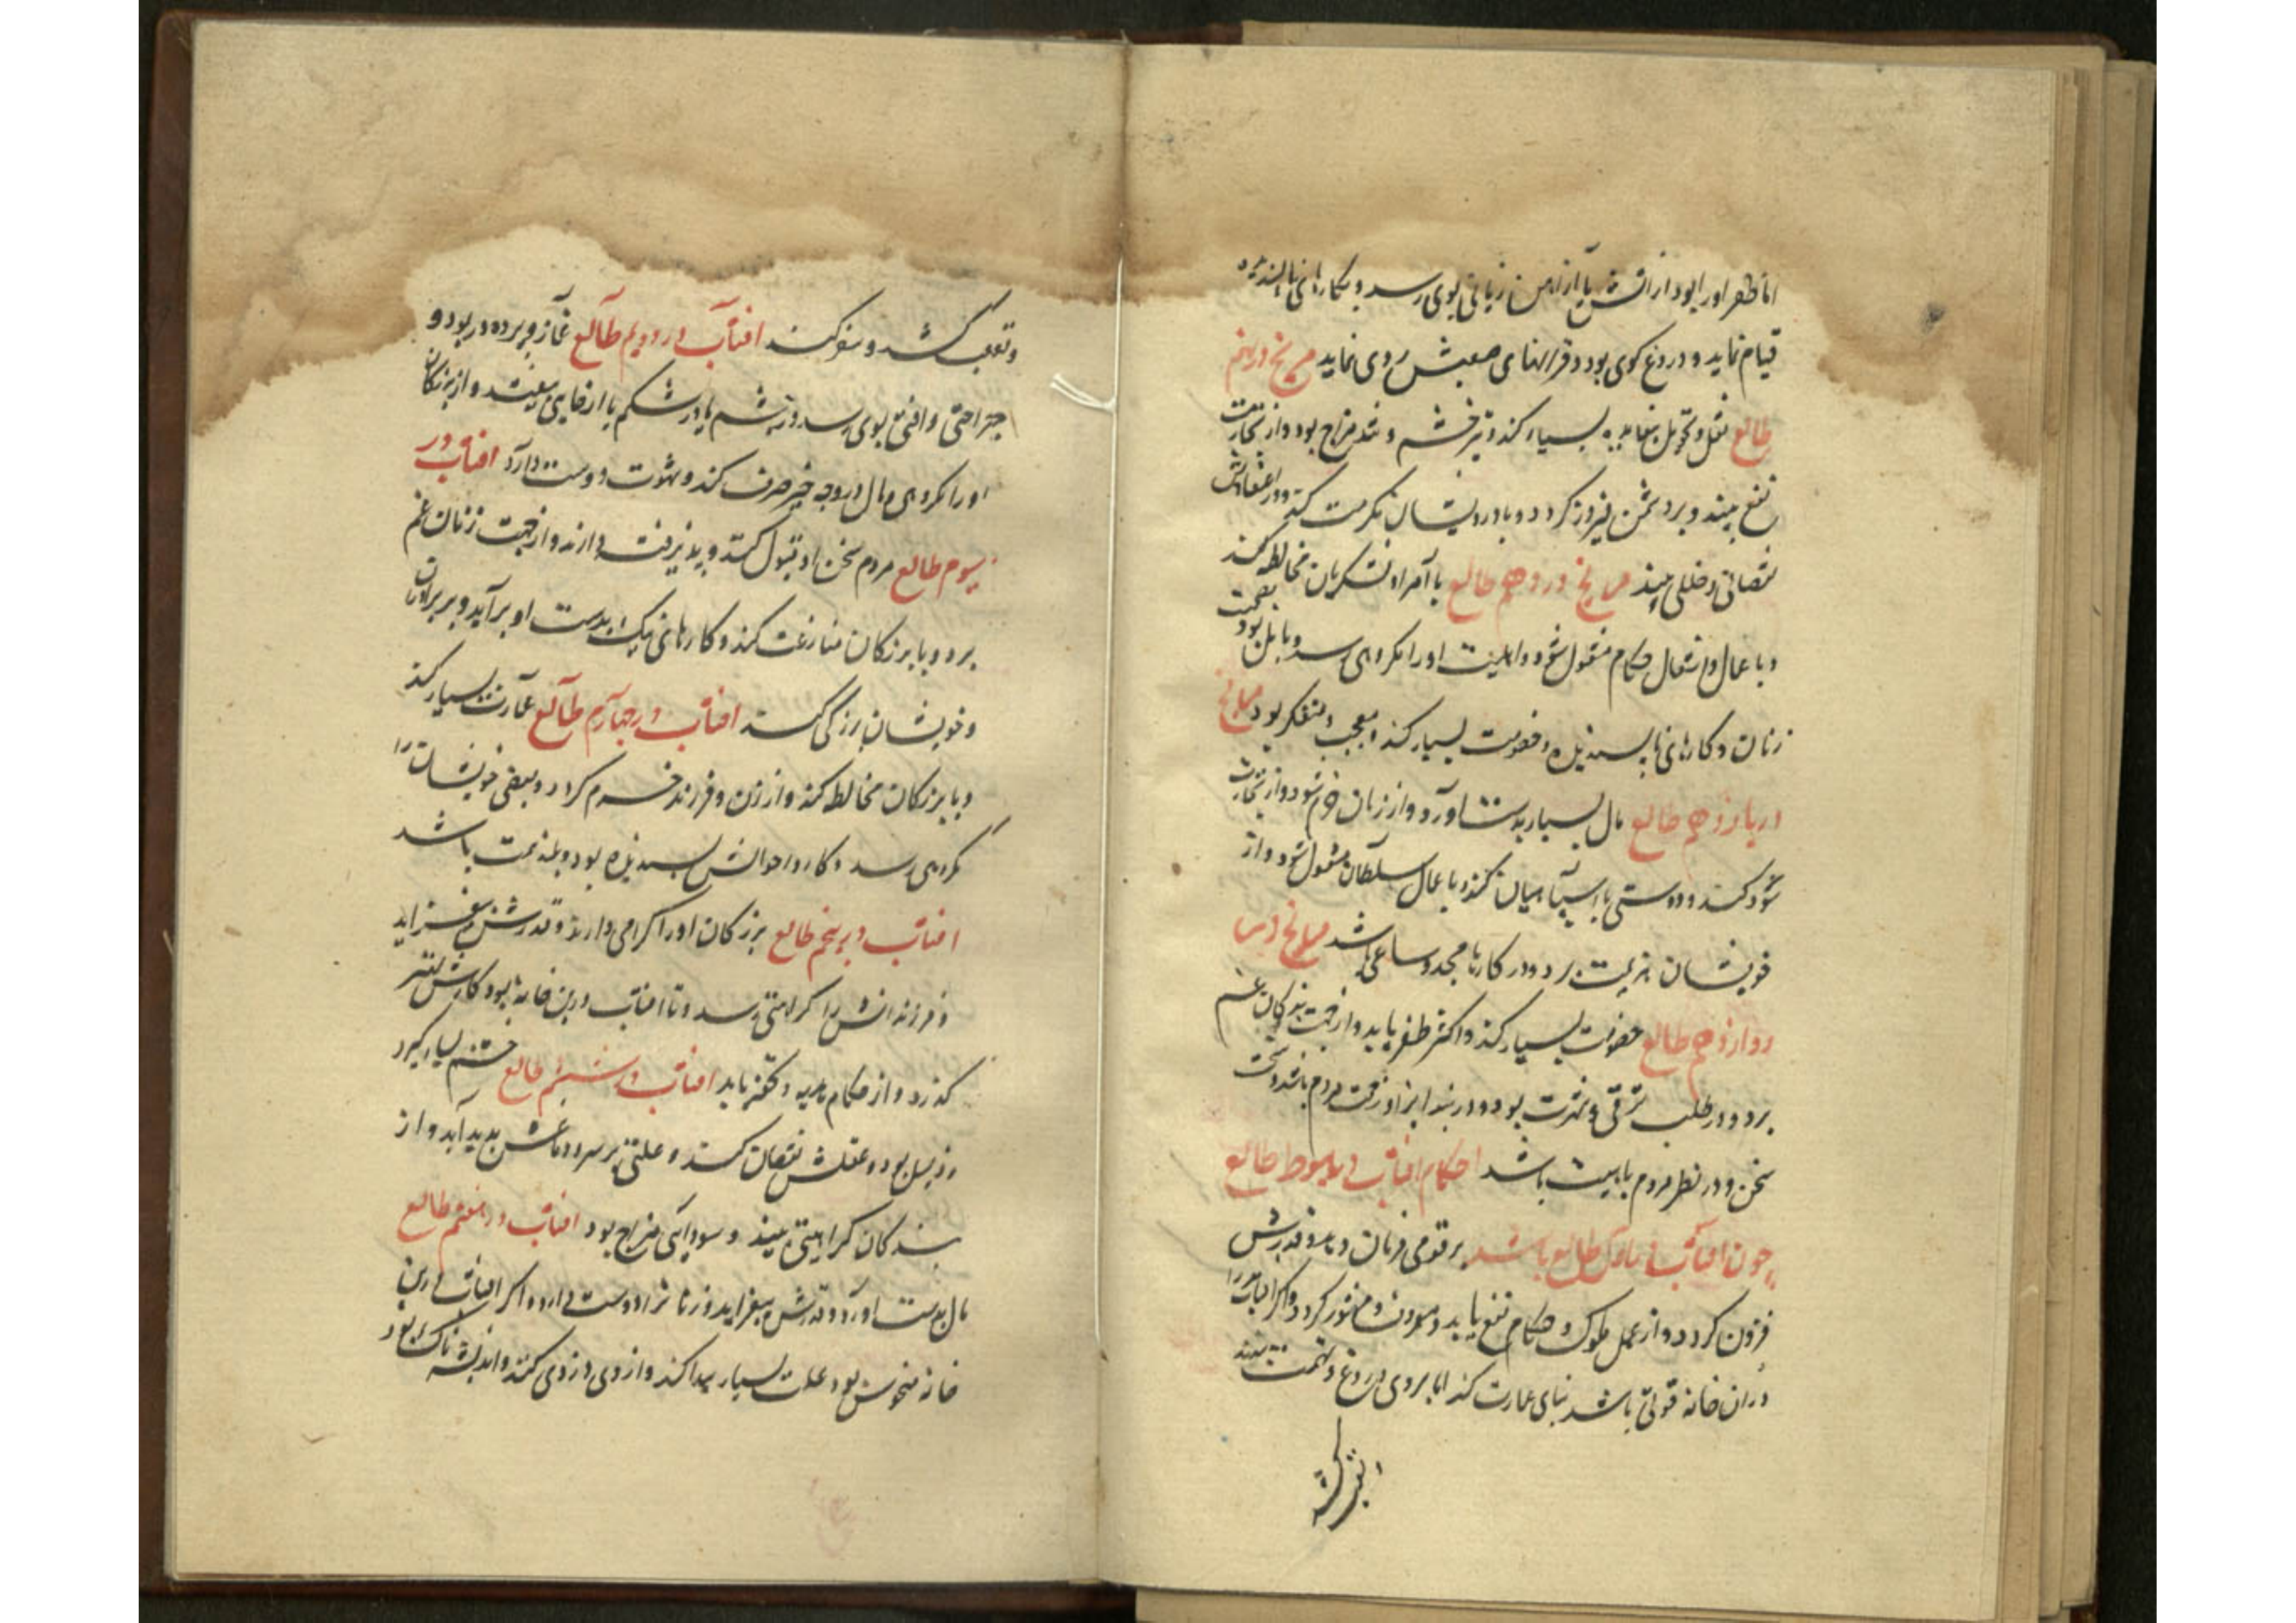 اما ظفر او را بود از آتش یا از آهن زیانی بوی رسد و بکارهای ناپسندیده
قیام نماید و دروغ کوی بود و قرانهای صعبش روی نماید مریخ در نهم
طالع نقل و تحویل بسیار کند و تیز خشم و تند مزاج بود و از تجارت
نفع بیند و بر دشمن فیروز کردد و با درویشان مکرمت کند و در اعتقادش
نقصانی و خللی بیند مریخ در دهم طالع با امرا و لشکریان مخالطه کند
و با عمال و اشغال حکام مشغول شود و اهلیت او را مکروهی رسد و مایل بود بصحبت
زنان و کارهای ناپسندیده و خصومت بسیار کند و معجب و متفکر بود مریخ
در یازدهم طالع مال بسیار بدست آورد و از زنان خرم شود و از تجارت
سود کند و دوستی با سپاهیان کند و با عمال سلطان مشغول شود و از
خویشان هزیمت برد و در کارها مجد و ساعی باشد مریخ در
دوازدهم طالع خصومت بسیار کند و اکثر ظفر یابد و از جهت بزرکان غم
برد و در طلب ترقی و شهرت بود و در بند ایذا و زحمت مردم باشد و سخت
سخن و در نظر مردم با هیبت باشد احکام افتاب در بیوط طالع
چون افتاب در اول طالع باشد بر قومی فرمان دهد و قدرش
فزون کردد و از عمل ملوک و حکام نفع یابد و معروف و مشهور کردد و اکر افتاب را
در آن خانه قوتی باشد بنای عمارت کند اما بر وی دروغ و تهمت بندند
و تعب کشد و سفر کند افتاب در دویم طالع غماز و پرده در بود و
جراحتی و آفتی بوی رسد در چشم یا در شکم یا از جایی بیفتد و از بزرکان
او را مکروهی و مال در وجه خیر صرف کند و شهوت دوست دارد افتاب در
سیوم طالع مردم سخن او قبول کنند و پذیرفته دارند و از جهت زنان غم
برد و با بزرکان منازعت کند و کارهای نیک از دست او برآید و بر برادران
و خویشان بزرکی کند افتاب در چهارم طالع عمارت بسیار کند
و با بزرکان مخالطه کند و از زن و فرزند خرم کردد و بعضی خویشان را
مکروهی رسد و کار و احوالش پسندیده بود و بلند همت باشد
افتاب در پنجم طالع بزرکان او را کرامی دارند و قدرش بیفزاید
و فرزندانش را کراهتی رسد و تا افتاب درین خانه بود کارش بهتر
کذرد و از حکام هدیه و تحفه یابد افتاب در ششم طالع خشم بسیار کیرد
و ذلیل بود و عقلش نقصان کند و علتی بر سر و دماغش بدید آید و از
بندکان کراهیتی بیند و سودایی مزاج بود افتاب در هفتم طالع
مال بدست آورد و قدرش بیفزاید و زنان را دوست دارد و اکر افتاب درین
خانه منحوس بود علت بسیار پیدا کند و از وی دزدی کنند و اندیشه ناک بود